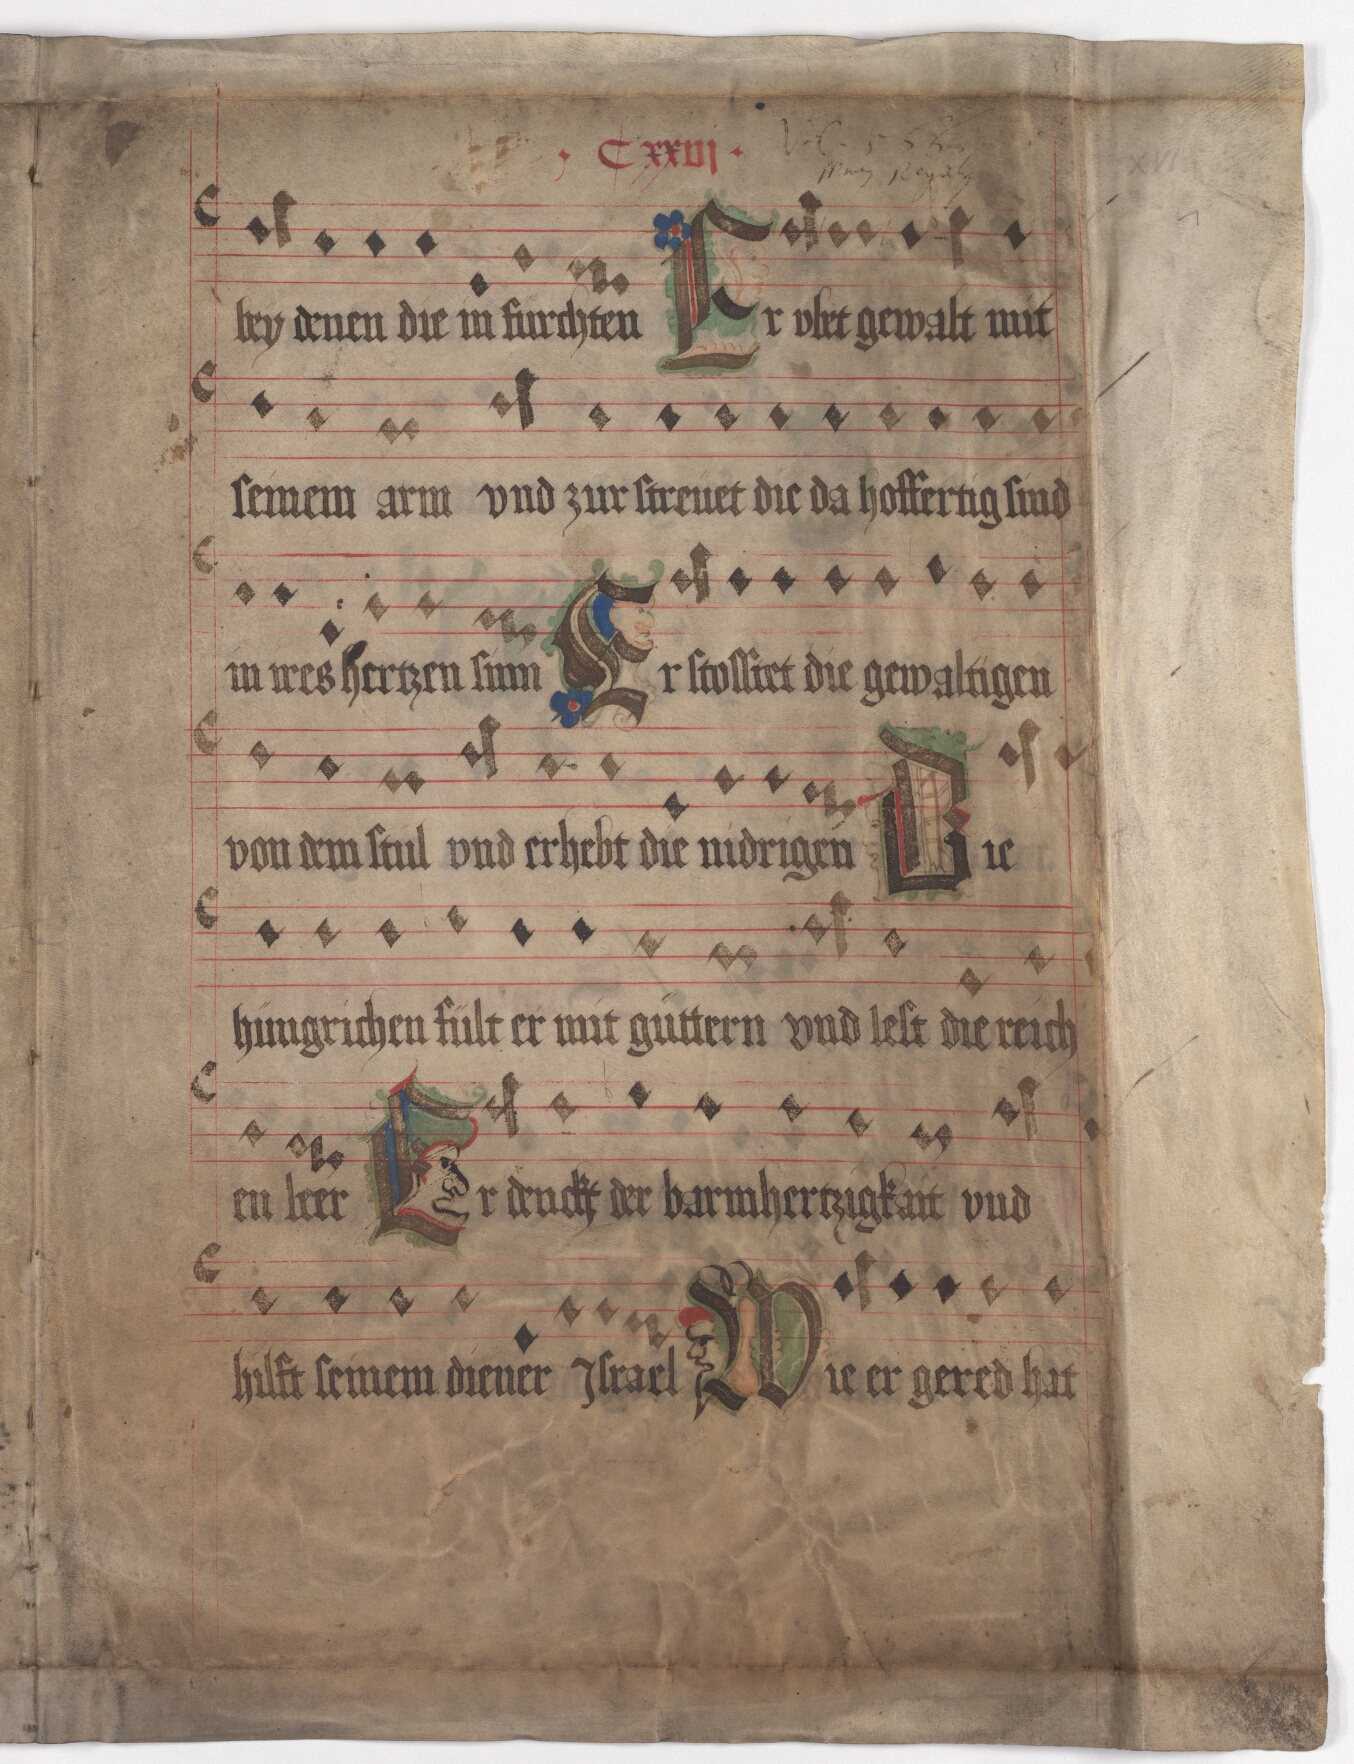 · CXXVI ·
bey denen die in furchten Er vbet gewalt mit
seinem arm vnd zurstreuet die da hoffertig sind
in ires hertzen sinn Er stosset die gewaltigen
von dem stul vnd erhebt die nidrigen Die
hungrichen fült er mit güttern vnd lest die reich
en leer Er denckt der barmhertzigkait vnd
hilft seinem diener Israel Wie er gered hat